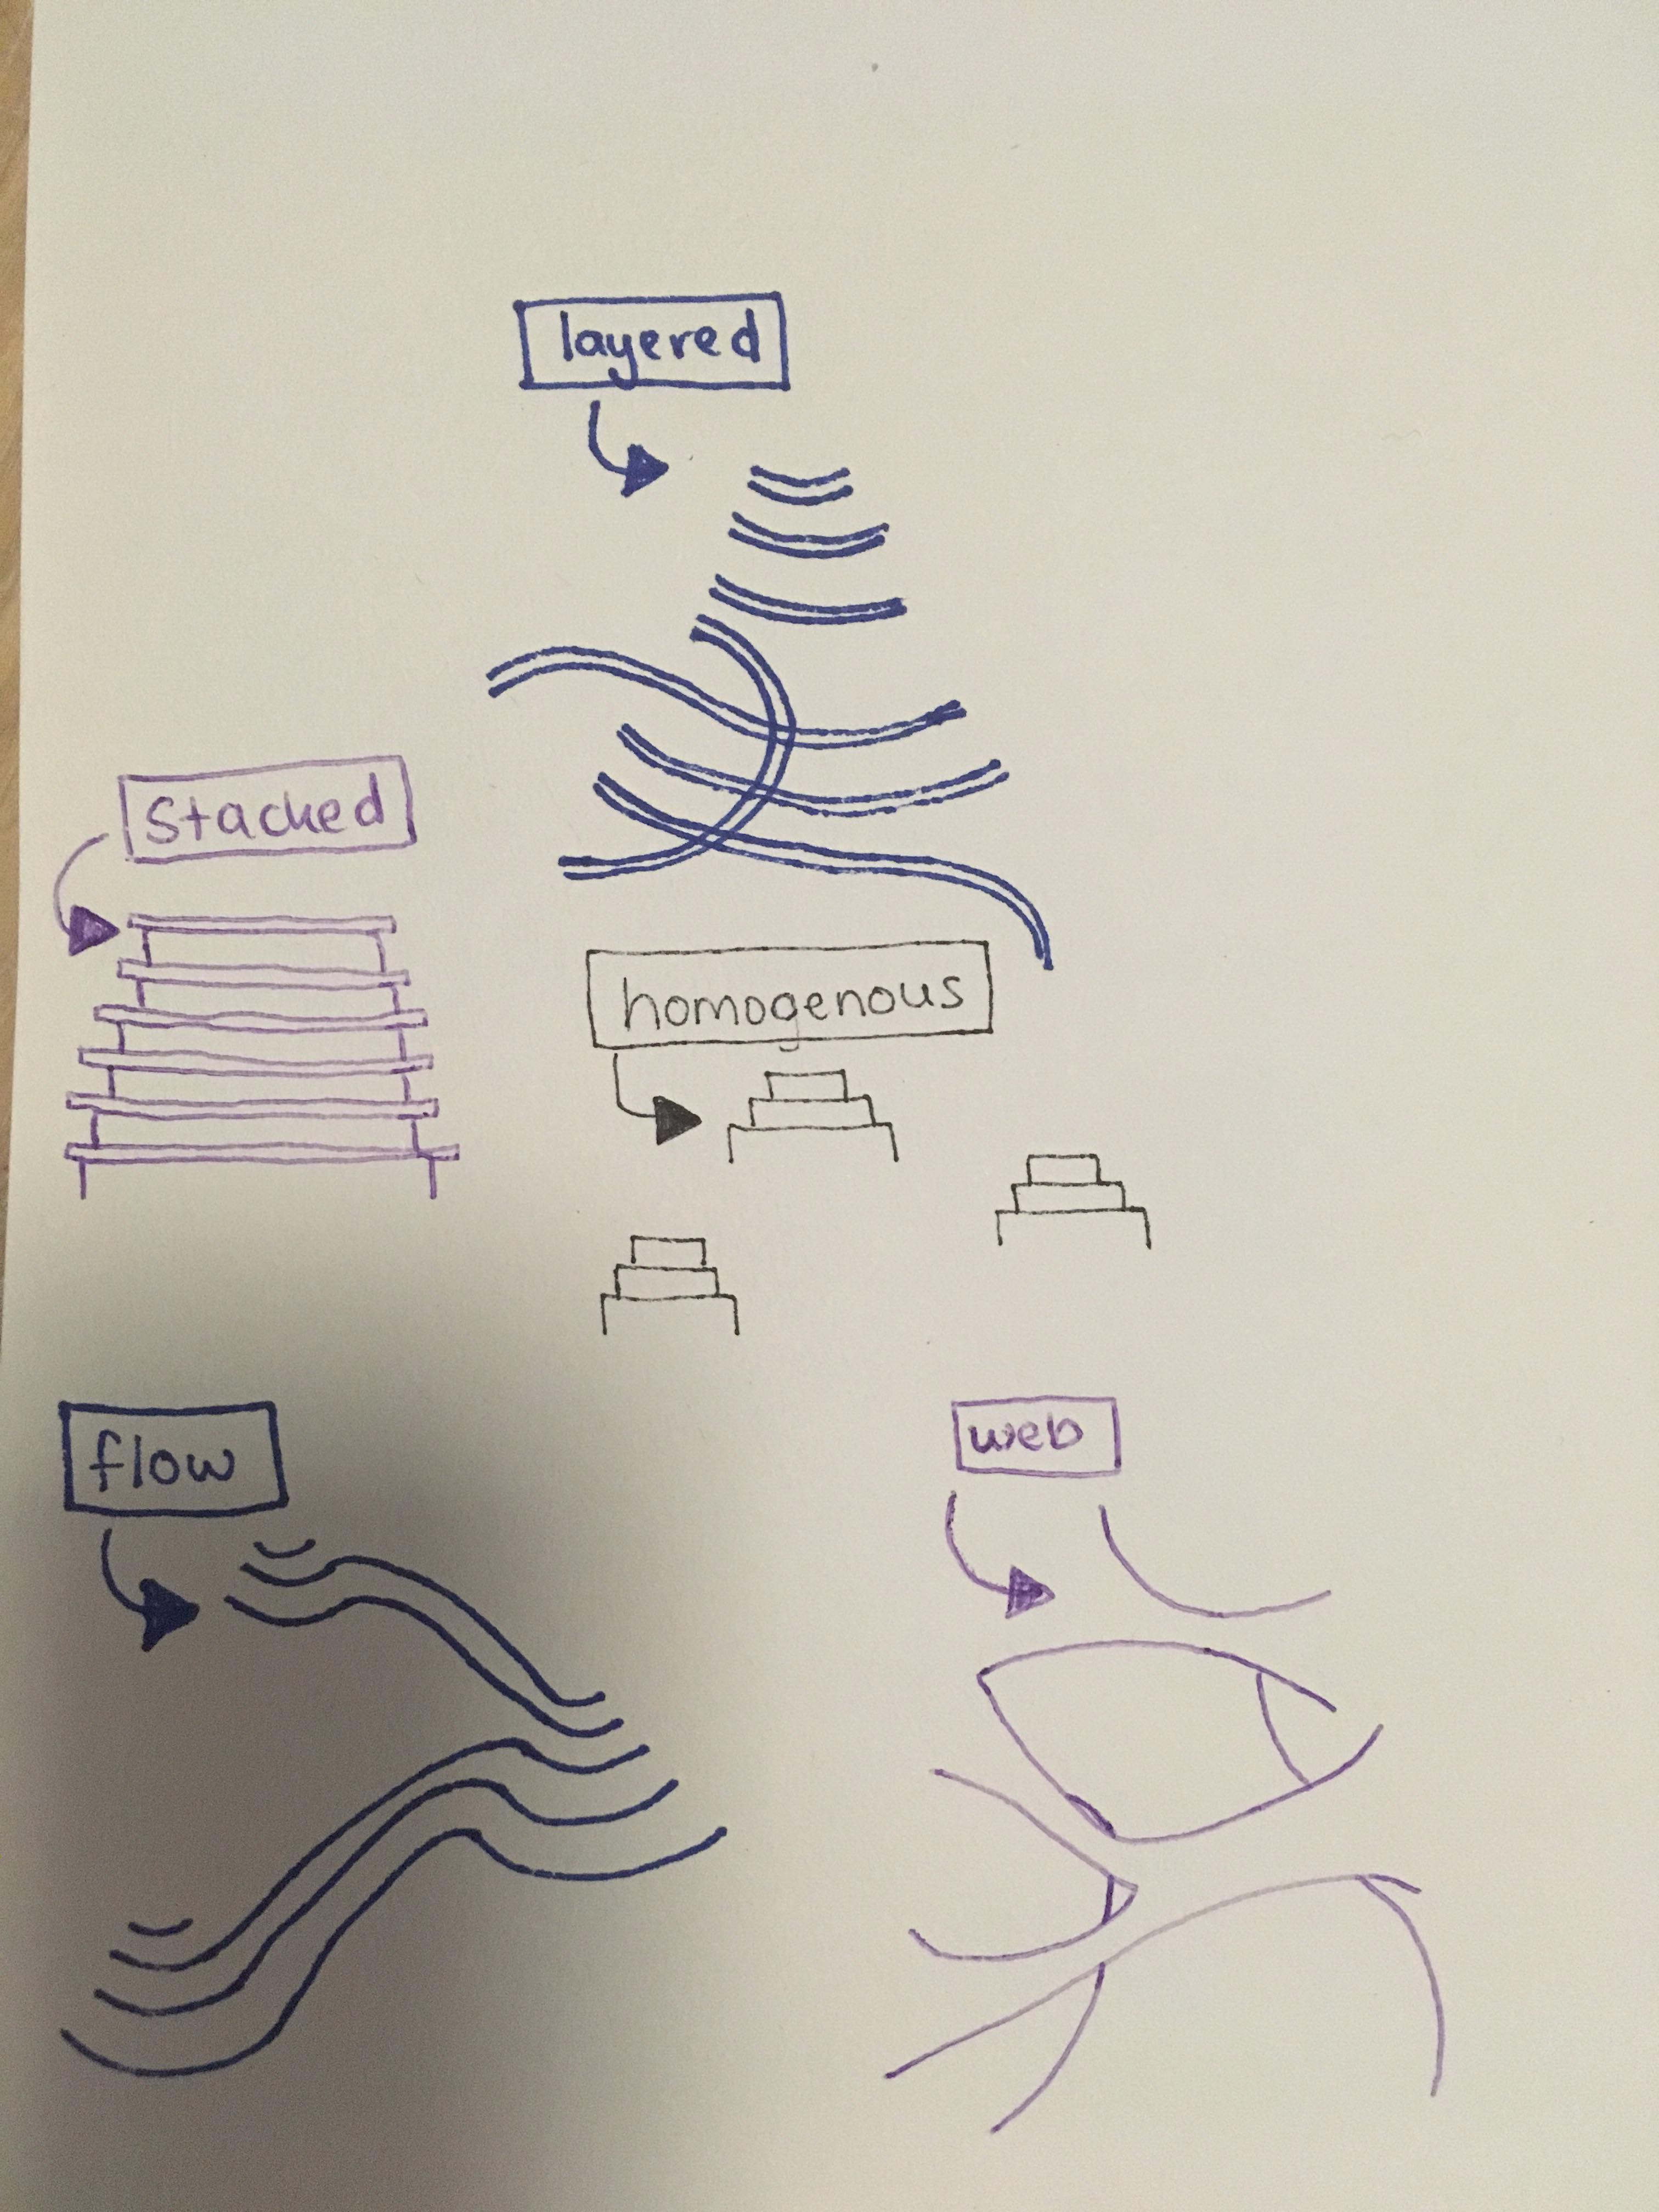 layered
Stacked
homogenous
flow
web